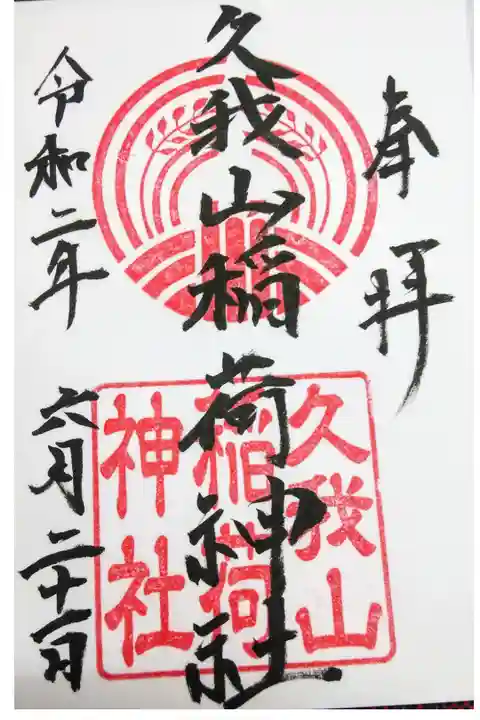 奉拝
久我山稲荷神社
令和二年
六月二十一日
久我山
稲荷
神社